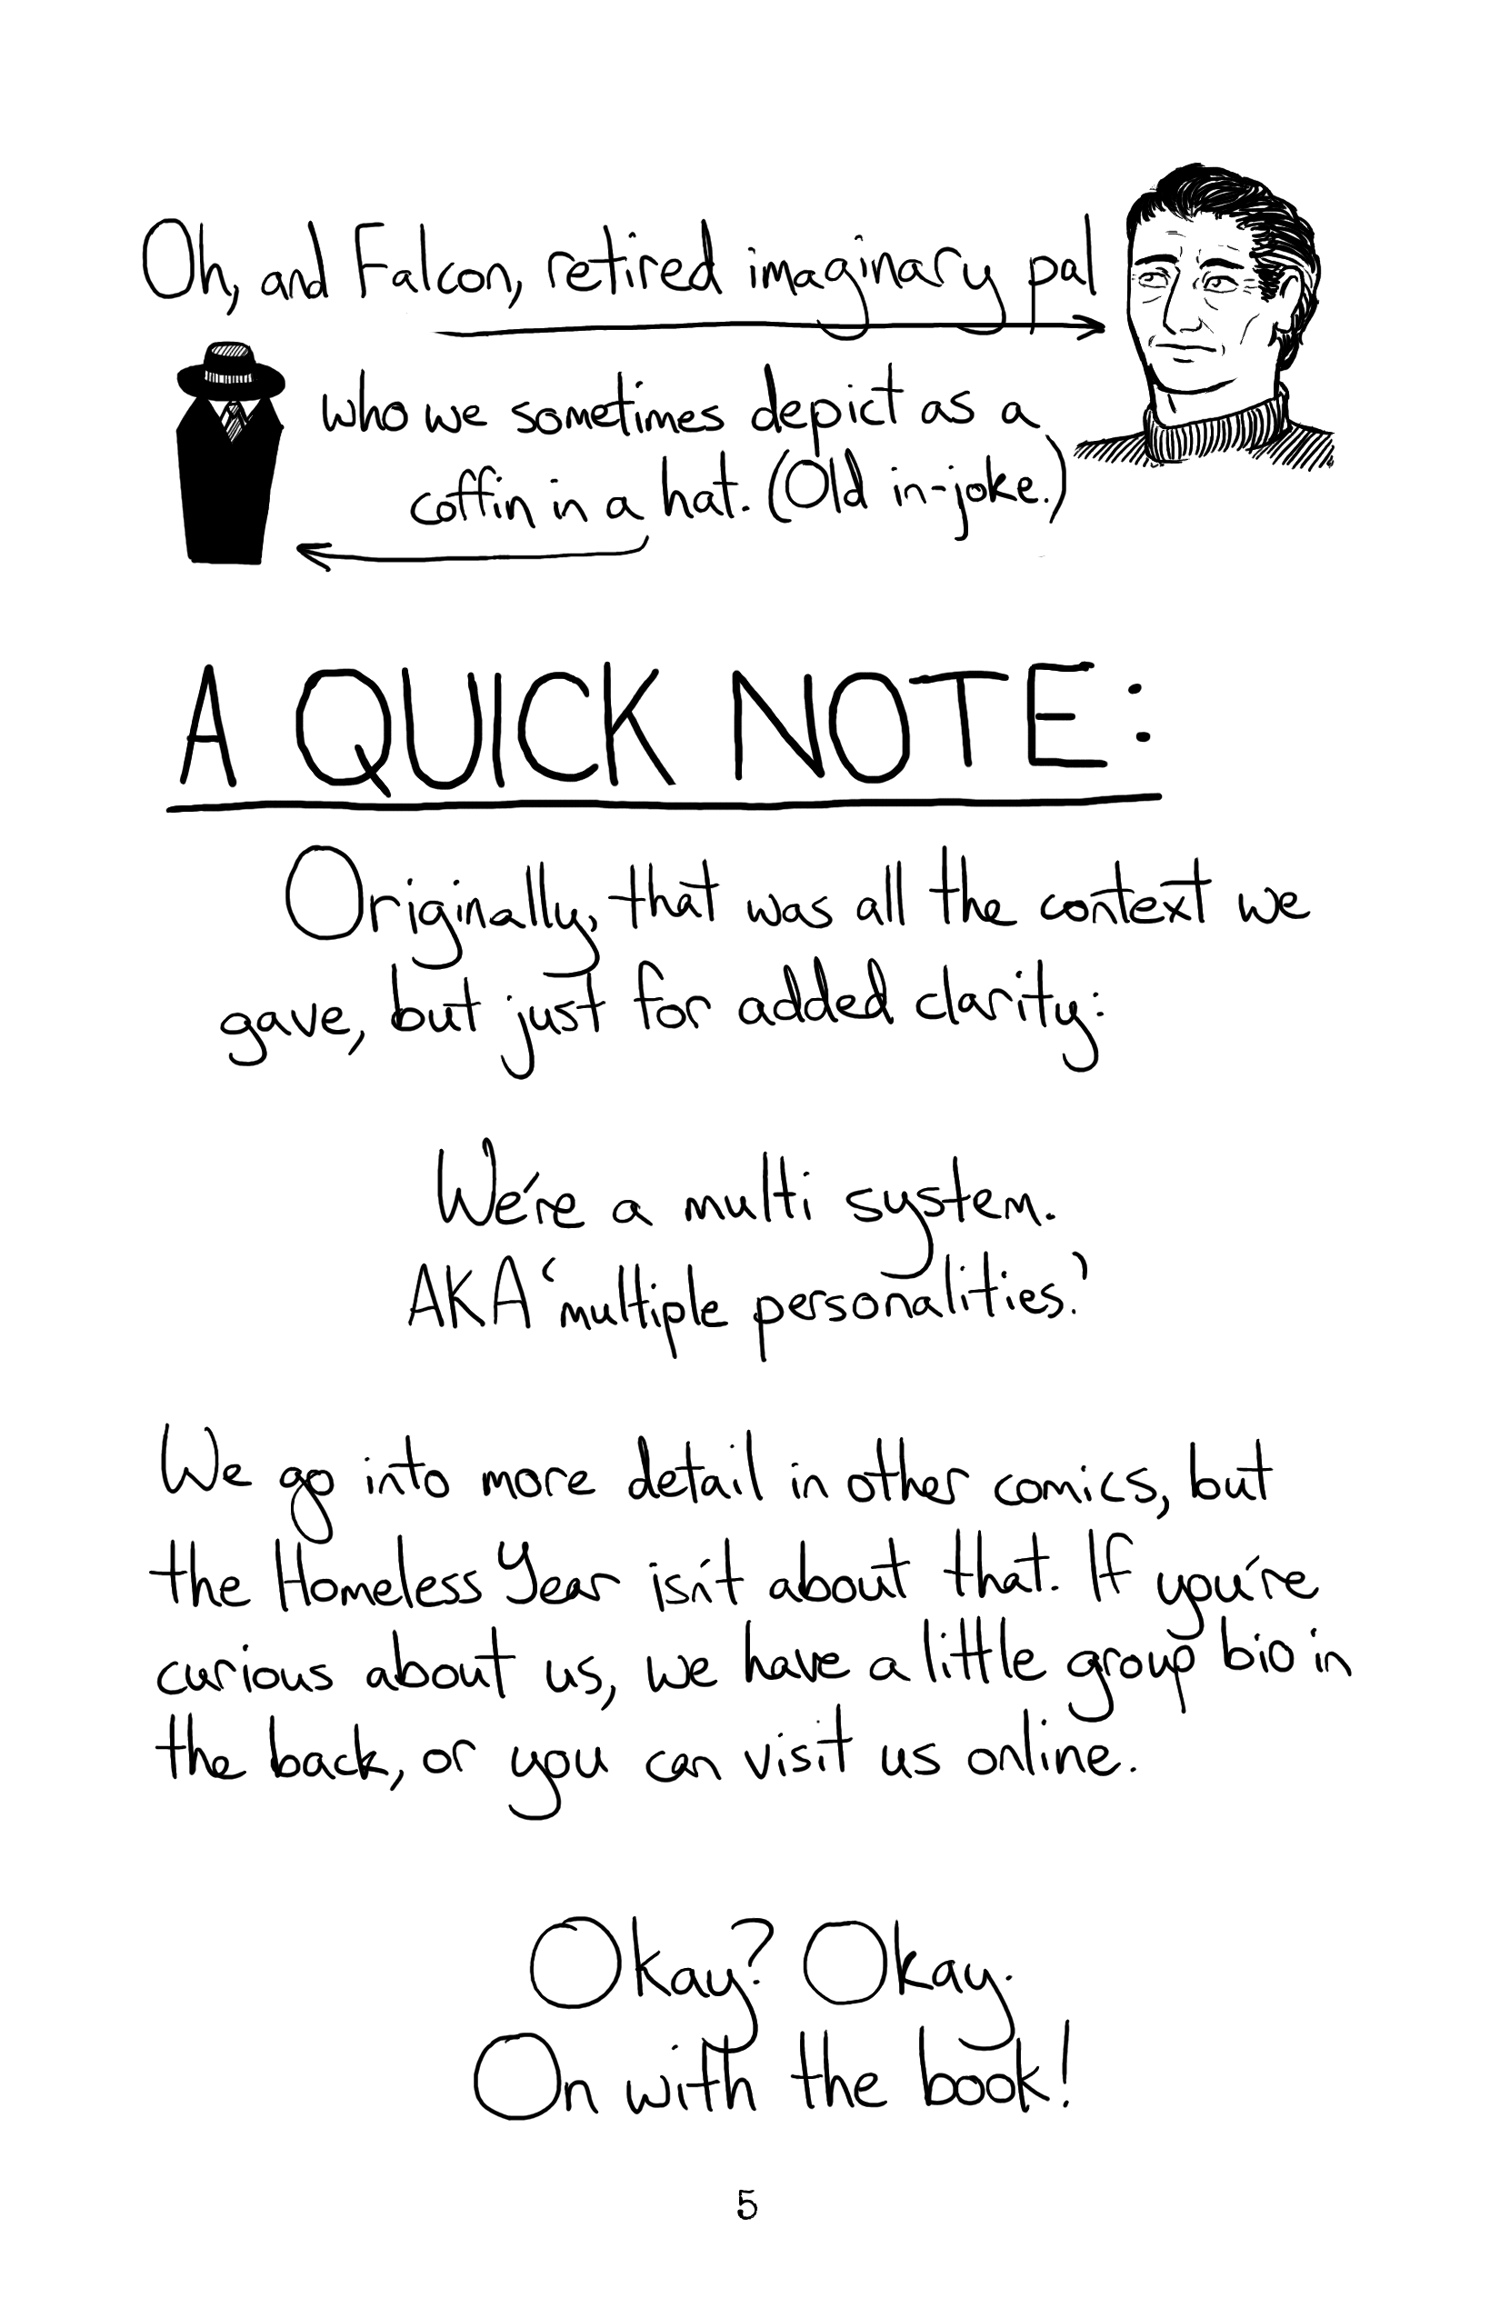 Oh, and Falcon, retired imaginary pal
who we sometimes depict as a
coffin in a hat. (Old in-joke.)
A QUICK NOTE:
Originally, that was all the context we
gave, but just for added clarity:
We're a multi system.
AKA 'multiple personalities.'
We go into more detail in other comics, but
the Homeless Year isn't about that. If you're
curious about us, we have a little group bio in
the back, or you can visit us online.
Okay? Okay.
On with the book!
5